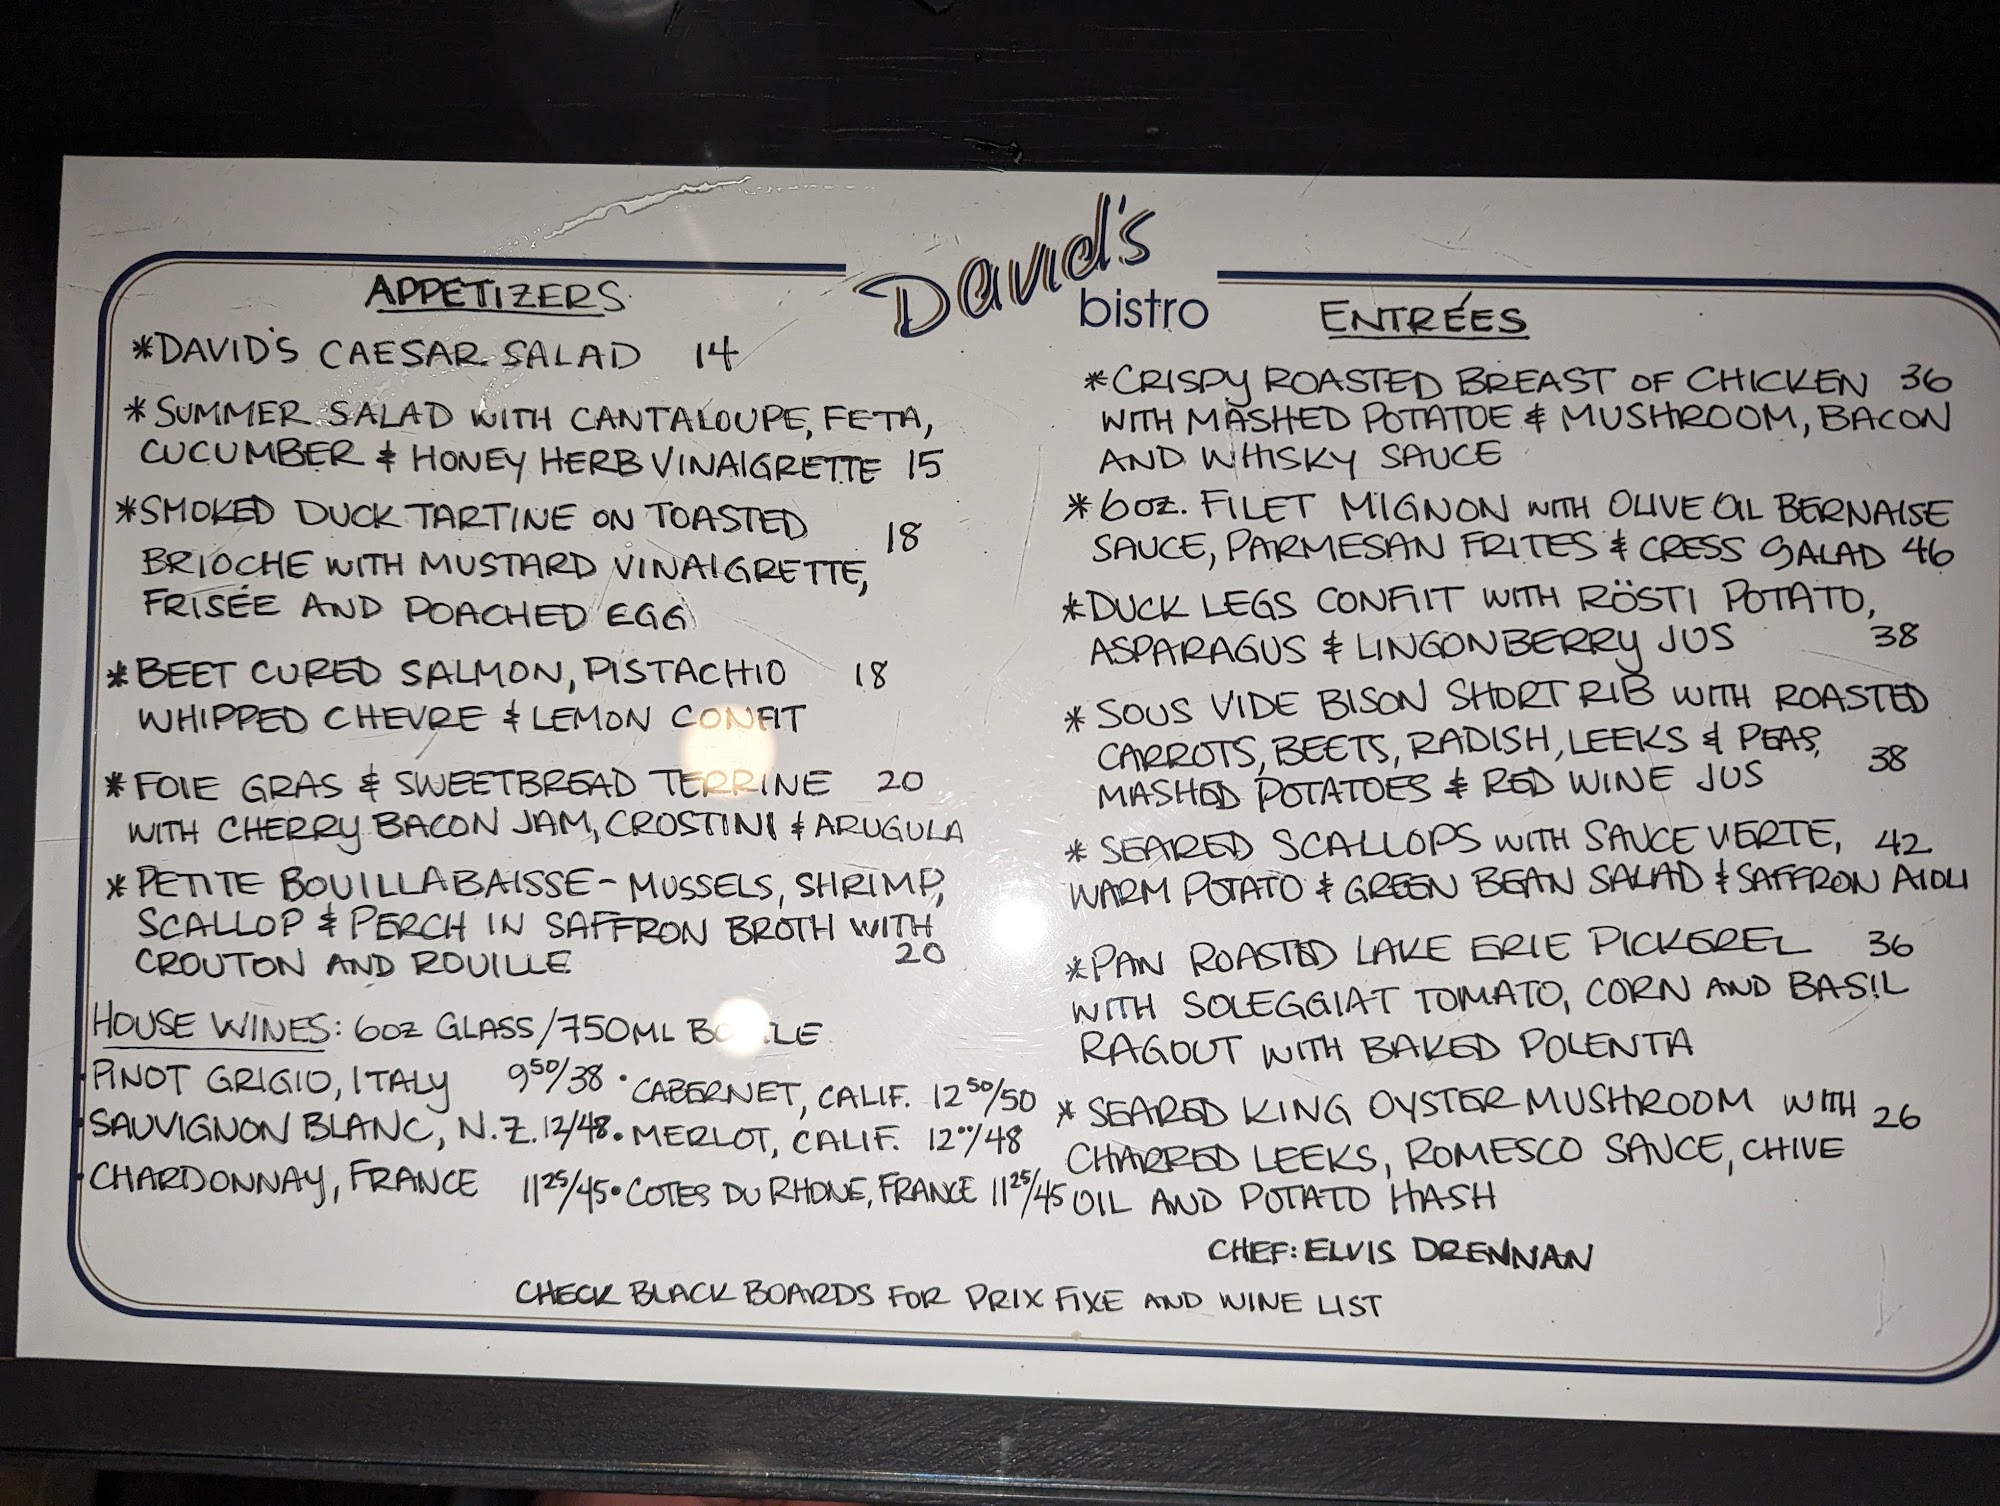 David's
bistro
APPETIZERS
*DAVID'S CAESAR SALAD 14
*SUMMER SALAD WITH CANTALOUPE, FETA,
CUCUMBER & HONEY HERB VINAIGRETTE 15
*SMOKED DUCK TARTINE ON TOASTED 18
BRIOCHE WITH MUSTARD VINAIGRETTE,
FRISÉE AND POACHED EGG
*BEET CURED SALMON, PISTACHIO 18
WHIPPED CHEVRE & LEMON CONFIT
*FOIE GRAS & SWEETBREAD TERRINE 20
WITH CHERRY BACON JAM, CROSTINI & ARUGULA
*PETITE BOUILLABAISSE - MUSSELS, SHRIMP,
SCALLOP & PERCH IN SAFFRON BROTH WITH
CROUTON AND ROUILLE 20
HOUSE WINES: 6OZ GLASS/750ML
• PINOT GRIGIO, ITALY 9⁵⁰/38 • CABERNET, CALIF. 12⁵⁰/50
• SAUVIGNON BLANC, N.Z. 12/48 • MERLOT, CALIF. 12⁰⁰/48
• CHARDONNAY, FRANCE 11²⁵/45 • COTES DU RHONE, FRANCE 11²⁵/45
ENTRÉES
*CRISPY ROASTED BREAST OF CHICKEN 36
WITH MASHED POTATOE & MUSHROOM, BACON
AND WHISKY SAUCE
*6OZ. FILET MIGNON WITH OLIVE OIL BERNAISE
SAUCE, PARMESAN FRITES & CRESS SALAD 46
*DUCK LEGS CONFIIT WITH RÖSTI POTATO,
ASPARAGUS & LINGONBERRY JUS 38
*SOUS VIDE BISON SHORT RIB WITH ROASTED
CARROTS, BEETS, RADISH, LEEKS & PEAS, 38
MASHED POTATOES & RED WINE JUS
*SEARED SCALLOPS WITH SAUCE VERTE, 42
WARM POTATO & GREEN BEAN SALAD & SAFFRON AIOLI
*PAN ROASTED LAKE ERIE PICKEREL 36
WITH SOLEGGIAT TOMATO, CORN AND BASIL
RAGOUT WITH BAKED POLENTA
*SEARED KING OYSTER MUSHROOM WITH 26
CHARRED LEEKS, ROMESCO SAUCE, CHIVE
OIL AND POTATO HASH
CHEF: ELVIS DRENNAN
CHECK BLACK BOARDS FOR PRIX FIXE AND WINE LIST